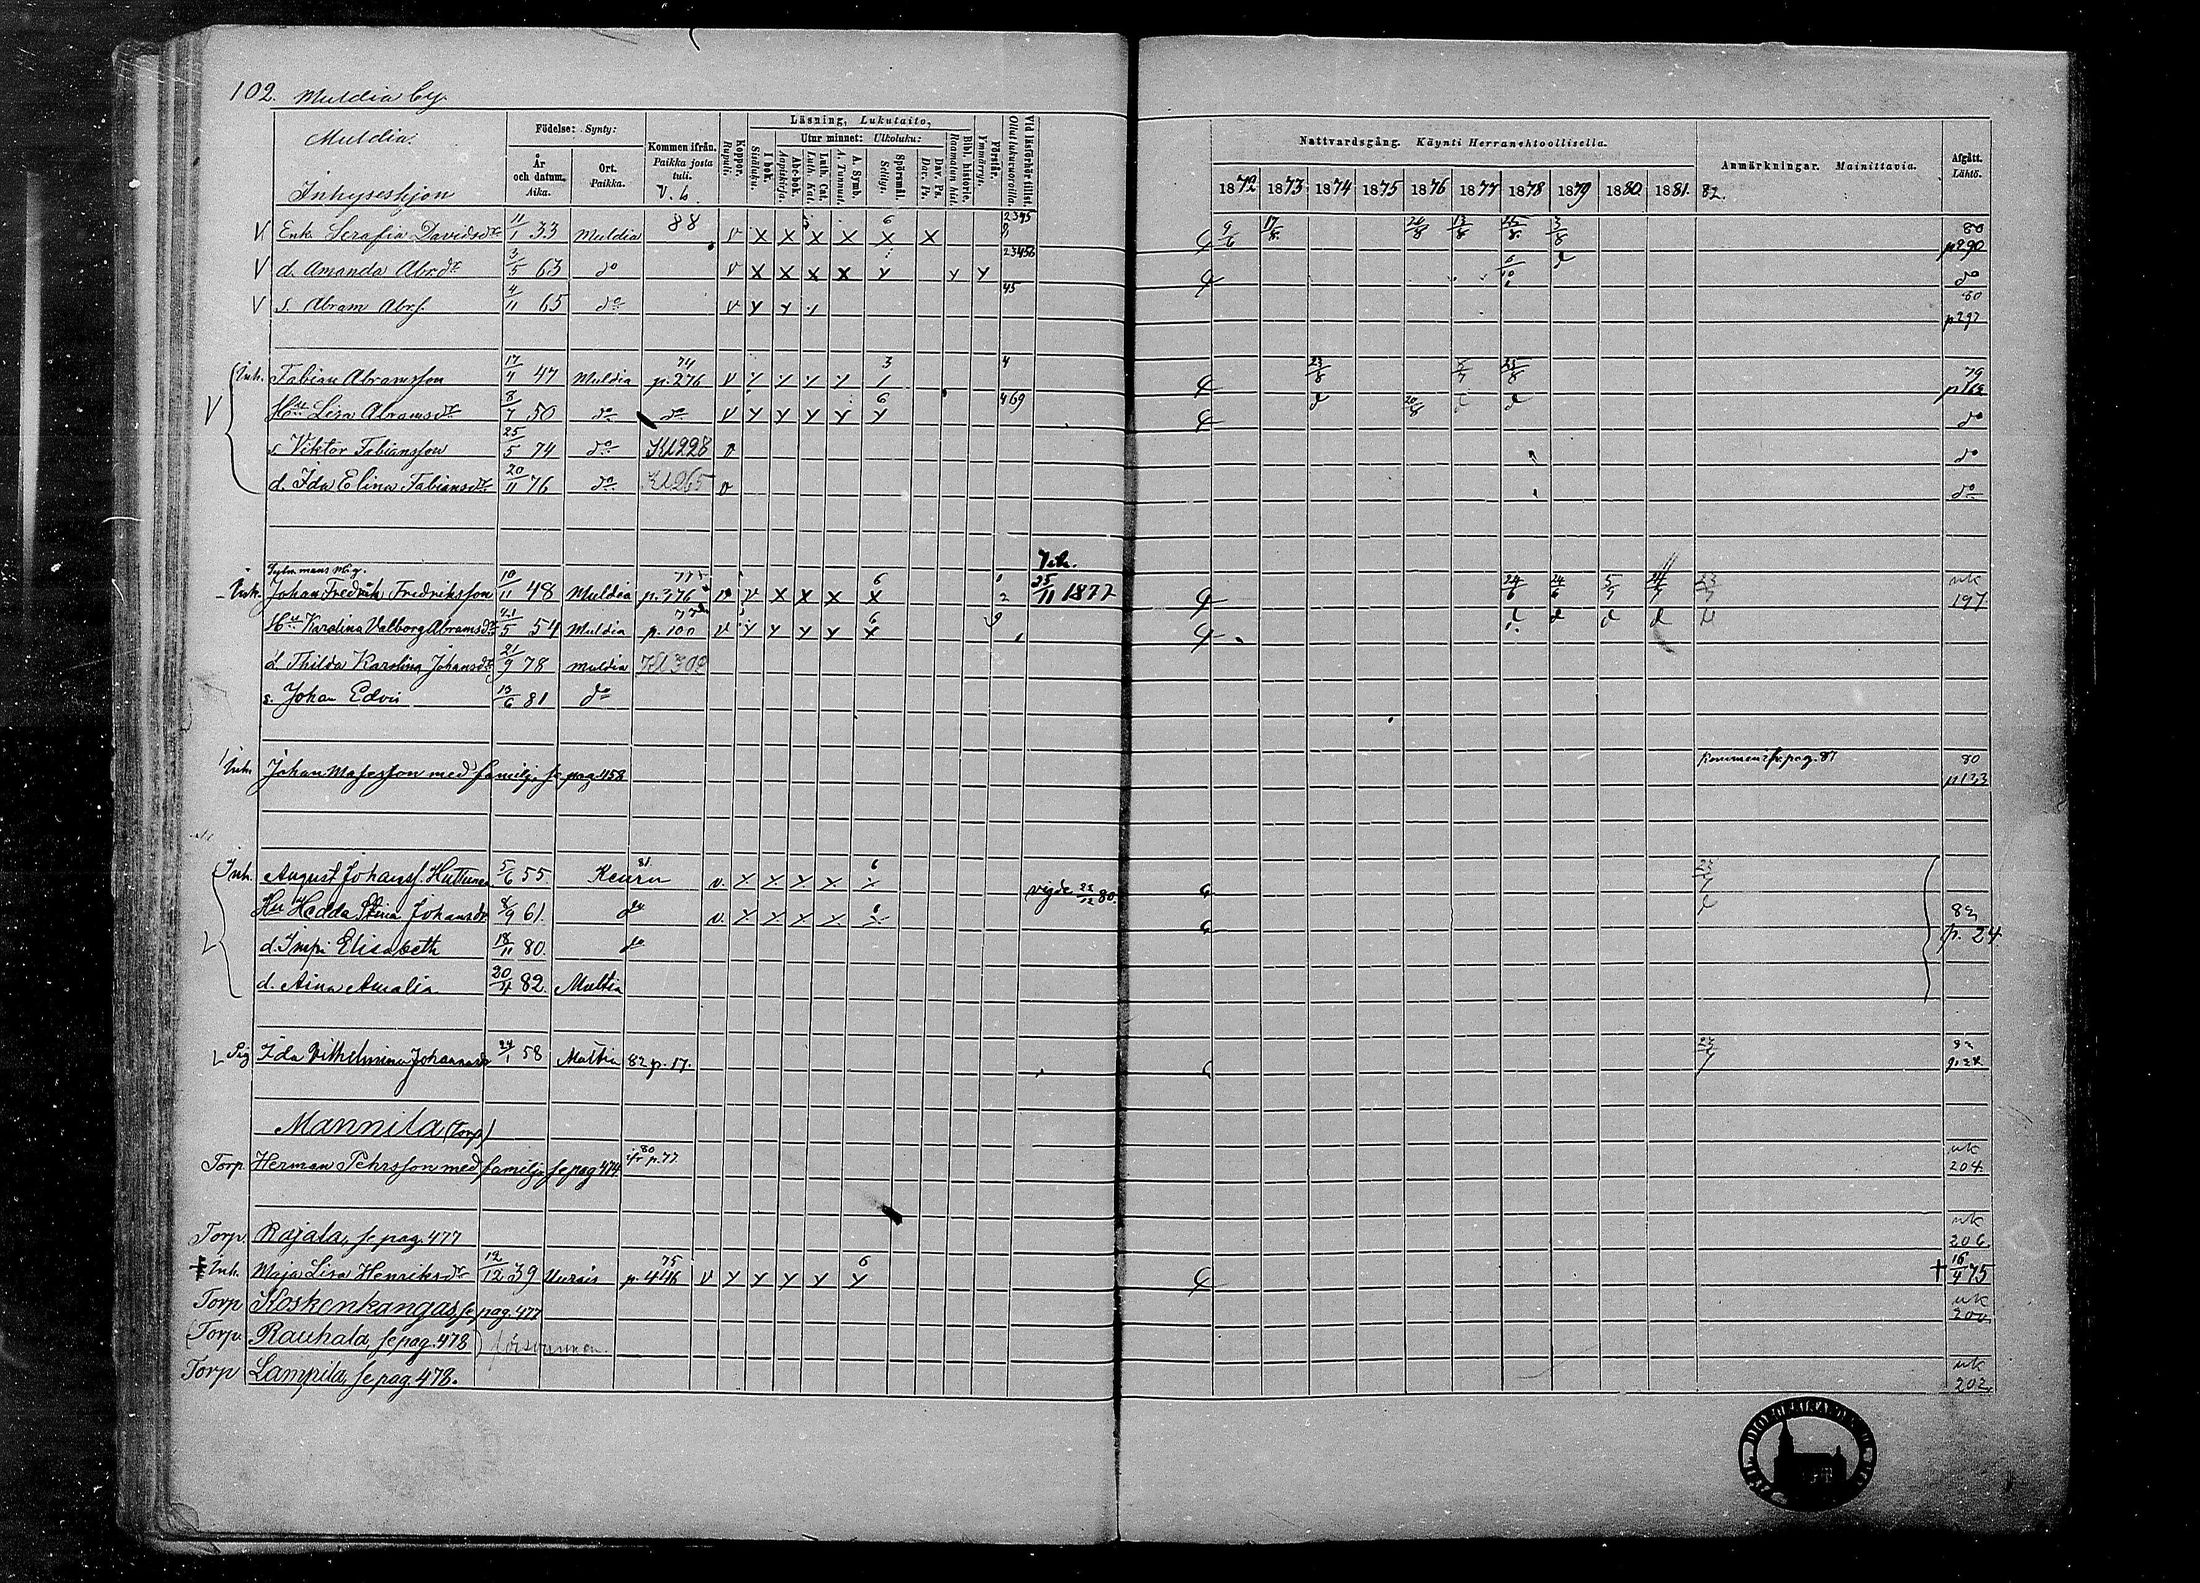 102. Muldia by.
Muldia.
Inhyseshjon
Födelse: Synty:
År och datum. Aika.
Ort. Paikka.
Kommen ifrån. Paikka josta tuli.
Koppor. Rupuli.
Läsning, Lukutaito,
I bok. Sisäluku.
Utur minnet: Ulkoluku:
Abc-bok. Aapiskirja.
Luth. Cat. Luth. Kat.
A. Symb. A. Tunnust.
Spörsmål. Selitys.
Dav. Ps. Dav. Ps.
Bibl. historie. Raamatun hist.
Förstår. Ymmärrys.
Vid läsförhör tillst. Ollut lukuvuoroilla.
Nattvardsgång. Käynti Herranehtoollisella.
1872 1873 1874 1875 1876 1877 1878 1879 1880 1881. 82.
Anmärkningar. Mainittavia.
Afgått. Lähtö.
V Enk. Serafia Davidsdr 11/1 33 Muldia 88 V X X X X 6 X X 2345 9/6 17/8 13/8 3/8 80 p290
V d. Amanda Abrdr 3/5 63 do V X X X X Y Y Y 23456 6/10 do
V s. Abram Abrs. 4/11 65 do V Y Y 45 80 p297
Inh. Fabian Abramsson 17/1 47 Muldia 74 p.276 V 3 4 23/8 25/8 79
V Hu Lisa Abramsdr 8/7 50 do do V Y Y Y Y 6 Y 469 20/8 d do
s Viktor Fabiansson 25/5 74 do KU228 do
d. Ida Elina Fabiansdr 20/11 76 do KU265 do
Inh. Johan Fredrik Fredriksson 10/11 48 Muldia p.376 V X X X X 6 25/11 1877 24/6 24/6 5/7 uk 197
Hu Karolina Valborg Abramsdr 21/5 54 Muldia p.100 V Y Y Y Y 6 X d d d d
d. Thilda Karolina Johansdr 21/9 78 Muldia KU302
s. Johan Edvin 13/6 81 do
Inh. Johan Mosesson med familj, se pag.458 Kommen fr. pag. 87 80 p133
Inh. August Johanss. Huttunen 5/6 55 81. Keuru v. X X X X 6 X vigde 80. 23/7
Hu Hedda Stina Johansdr 61. do v. X X X X 6 X 82 p. 24
d. Impi Elisabeth 18/11 80. do
d. Aina Amalia 20/4 82. Multia
Pig Ida Vilhelmina Johannesdr 24/1 58 Multia 82 p. 17. 23/7 82
Mannila (Torp)
Torp. Herman Pehrsson med familj, se pag 474 80 ifr p.77 uk 204.
Torp. Rajala, se pag. 477 uk 206
† Inh. Maja Lisa Henriksdr 12/12 39 75 p.446 V Y Y Y Y 6 Y † 16/4 75
Torp Koskenkangas, se pag. 477 uk
(Torp. Rauhala, se pag. 478) försvunnen.
Torp Lampila, se pag. 478. uk 202